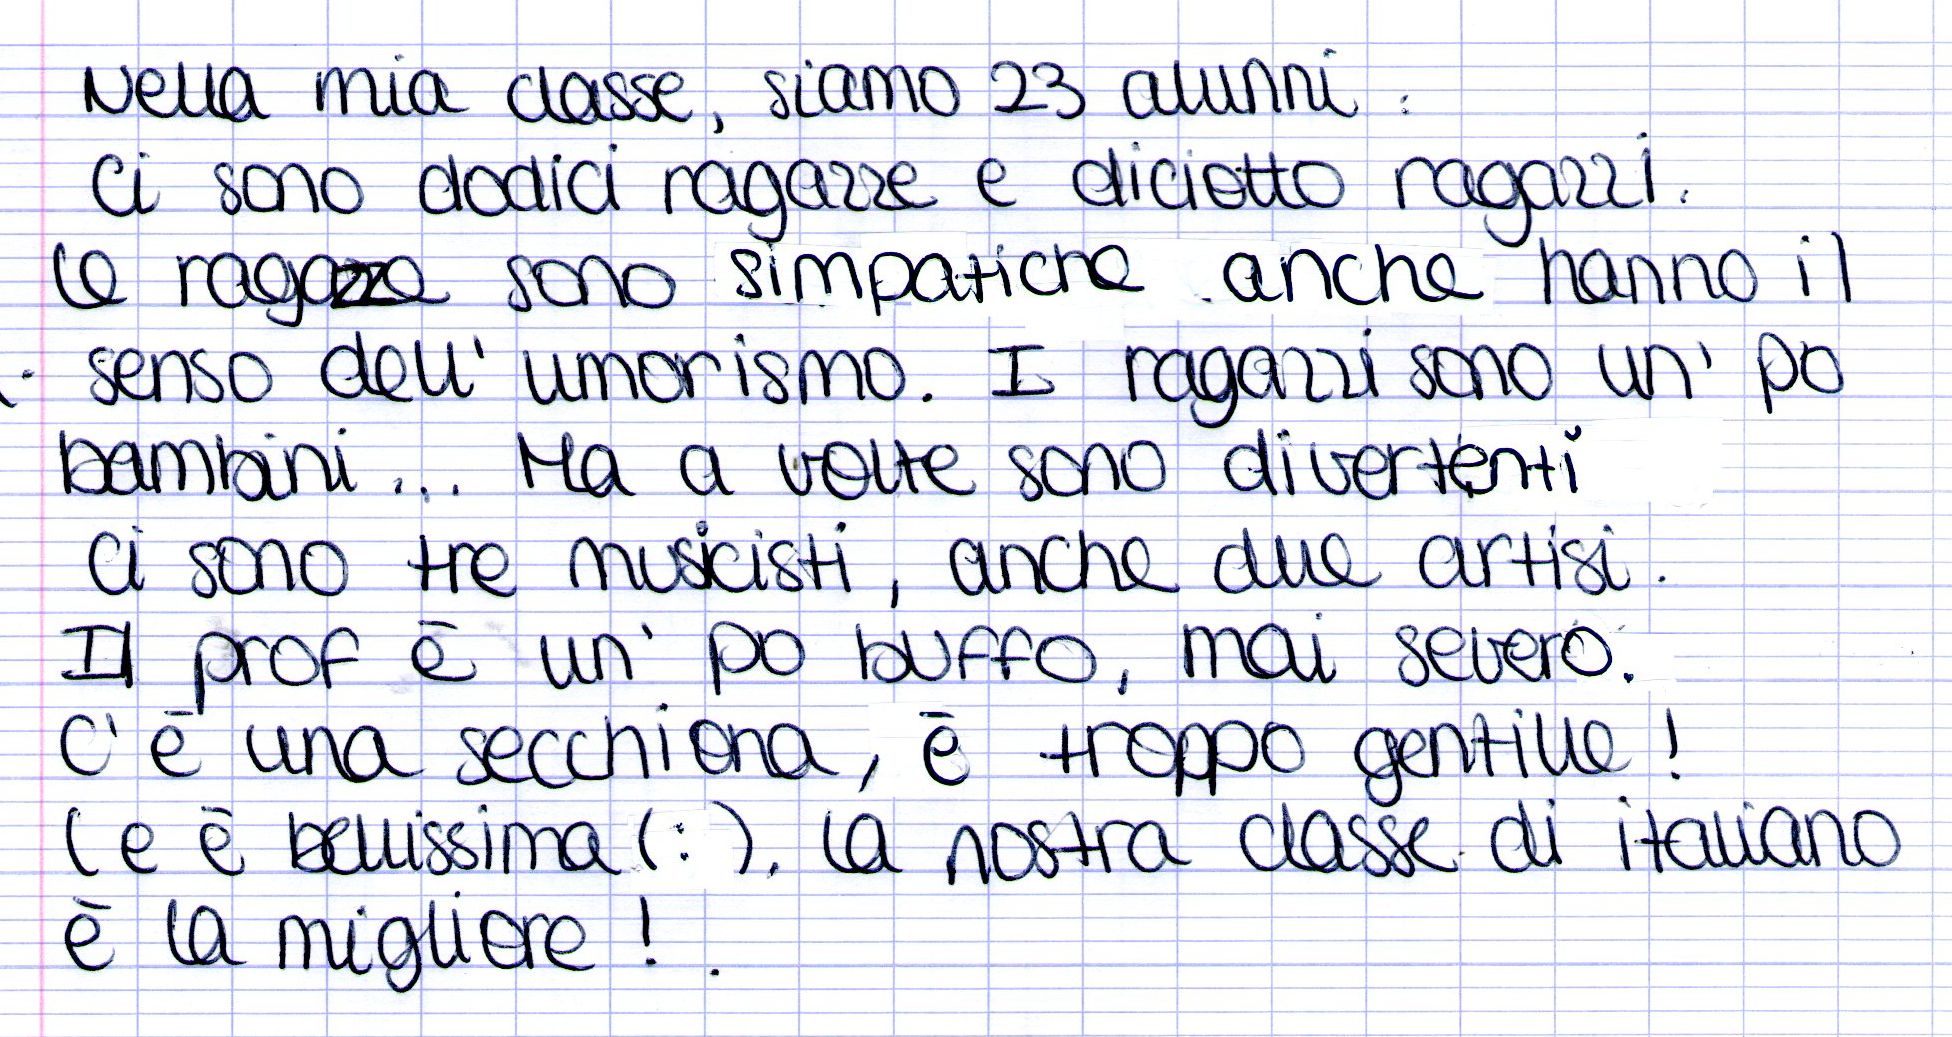 Nella mia classe, siamo 23 alunni.
Ci sono dodici ragazze e diciotto ragazzi.
Le ragazze sono simpatiche anche hanno il
senso dell'umorismo. I ragazzi sono un' po
bambini... Ma a volte sono divertenti
Ci sono tre musicisti, anche due artisi.
Il prof è un' po buffo, mai severo.
C'è una secchiona, è troppo gentille!
(e è bellissima (:). La nostra classe di italiano
è la migliore!.